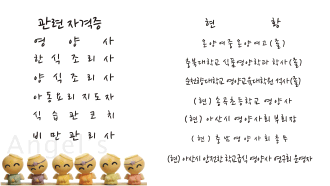 관련자격증
영 양 사
한 식 조 리 사
양 식 조 리 사
아 동 요 리 지 도 자
식 습 관 코 치
비 만 관 리 사
Angel's
현 황
온양여중 온양여고(졸)
충북대학교 식품영양학과 학사(졸)
순천향대학교 영양교육대학원 석사(졸)
(현) 송곡초등학교 영양사
(현) 아산시 영양사회부회장
(현) 충남영양사회총무
(현) 아산시 안전한 학교급식 영양사 연구회 운영자